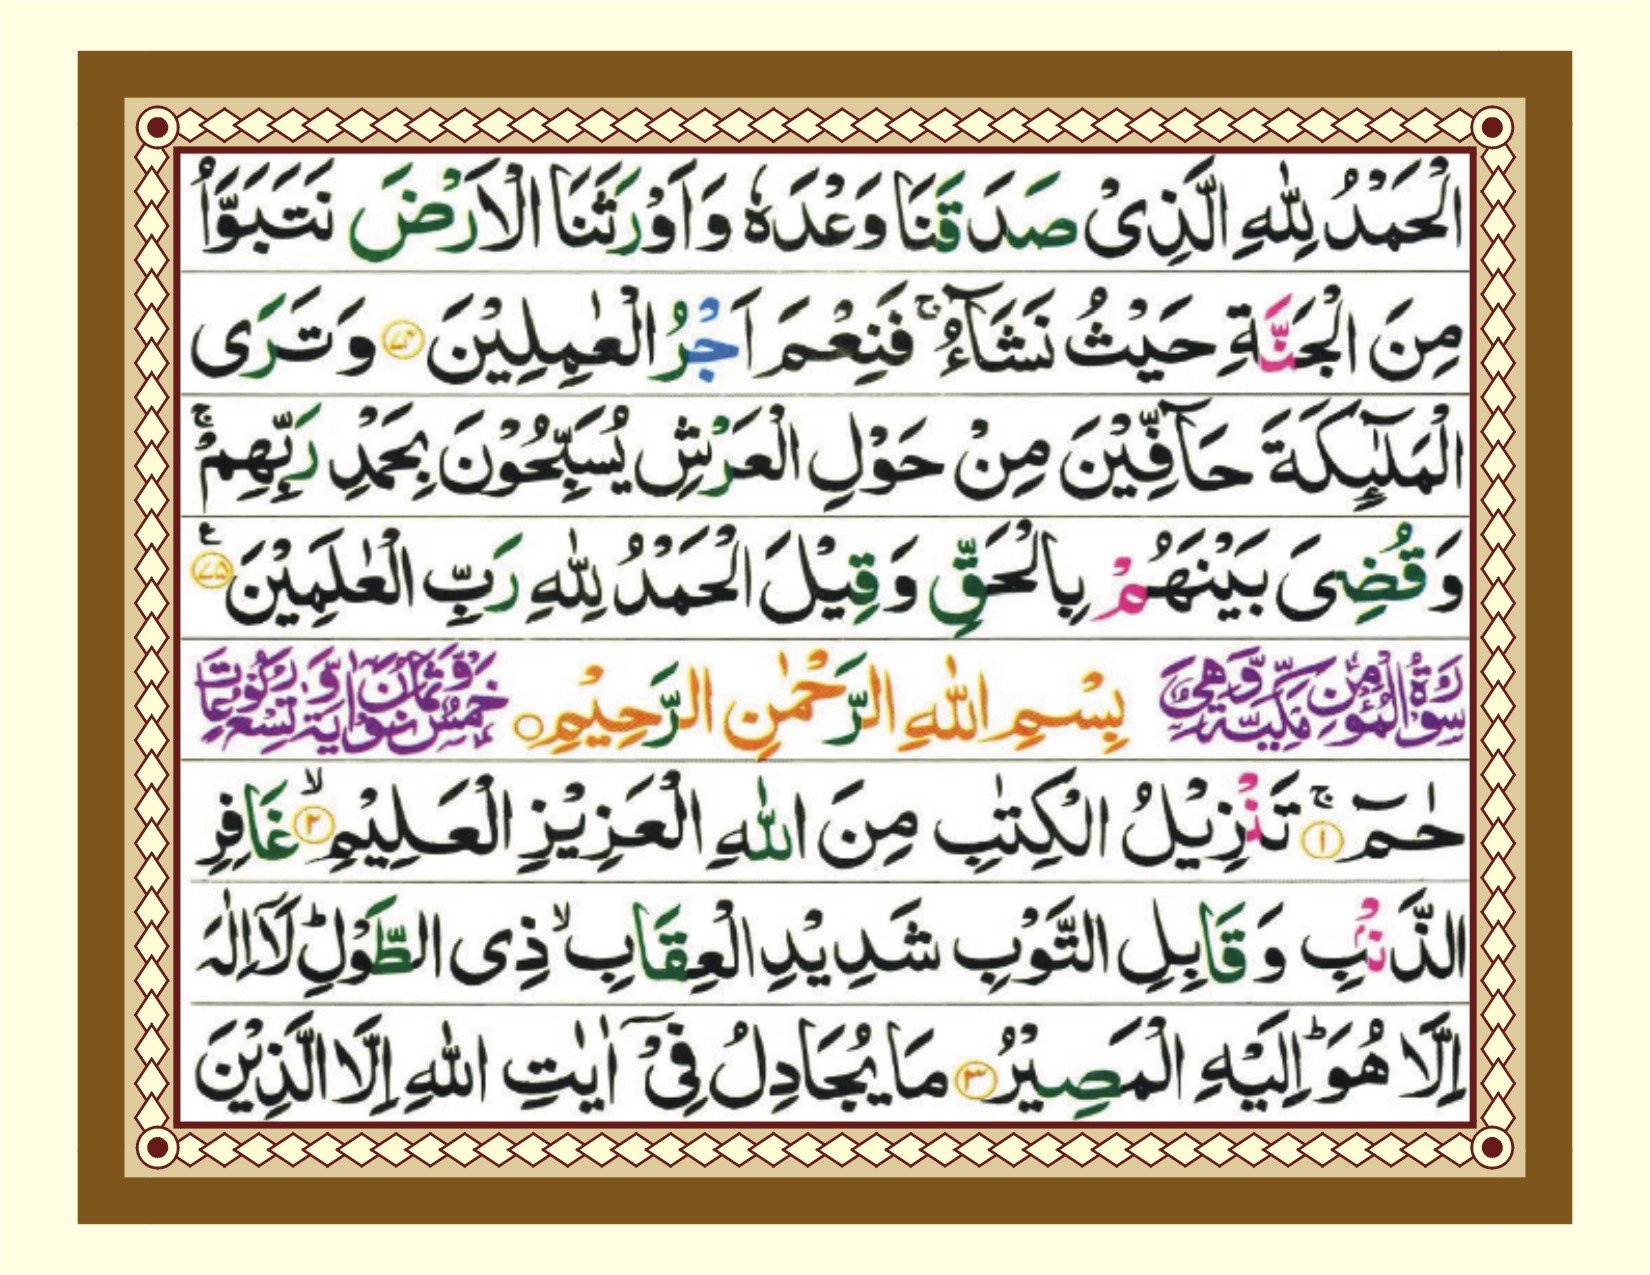 الْحَمْدُ لِلّٰهِ الَّذِیْ صَدَقَنَا وَعْدَهٗ وَاَوْرَثَنَا الْاَرْضَ نَتَبَوَّاُ
مِنَ الْجَنَّةِ حَیْثُ نَشَآءُ ۚ فَنِعْمَ اَجْرُ الْعٰمِلِیْنَ ﴿۷۴﴾ وَتَرَی
الْمَلٰٓئِكَةَ حَآفِّیْنَ مِنْ حَوْلِ الْعَرْشِ یُسَبِّحُوْنَ بِحَمْدِ رَبِّهِمْ ۚ
وَقُضِیَ بَیْنَهُمْ بِالْحَقِّ وَقِیْلَ الْحَمْدُ لِلّٰهِ رَبِّ الْعٰلَمِیْنَ ﴿۷۵﴾ ع
سُوْرَةُ الْمُؤْمِنِ مَكِّیَّةٌ وَّهِیَ بِسْمِ اللّٰهِ الرَّحْمٰنِ الرَّحِیْمِ ○ خَمْسٌ وَّثَمَانُوْنَ اٰیَةً وَّتِسْعُ رُكُوْعَاتٍ
حٰمٓ ۚ ﴿۱﴾ تَنْزِیْلُ الْكِتٰبِ مِنَ اللّٰهِ الْعَزِیْزِ الْعَلِیْمِ ۙ ﴿۲﴾ غَافِرِ
الذَّنْۢبِ وَقَابِلِ التَّوْبِ شَدِیْدِ الْعِقَابِ ۙ ذِی الطَّوْلِ ؕ لَاۤ اِلٰهَ
اِلَّا هُوَ ؕ اِلَیْهِ الْمَصِیْرُ ﴿۳﴾ مَا یُجَادِلُ فِیْۤ اٰیٰتِ اللّٰهِ اِلَّا الَّذِیْنَ